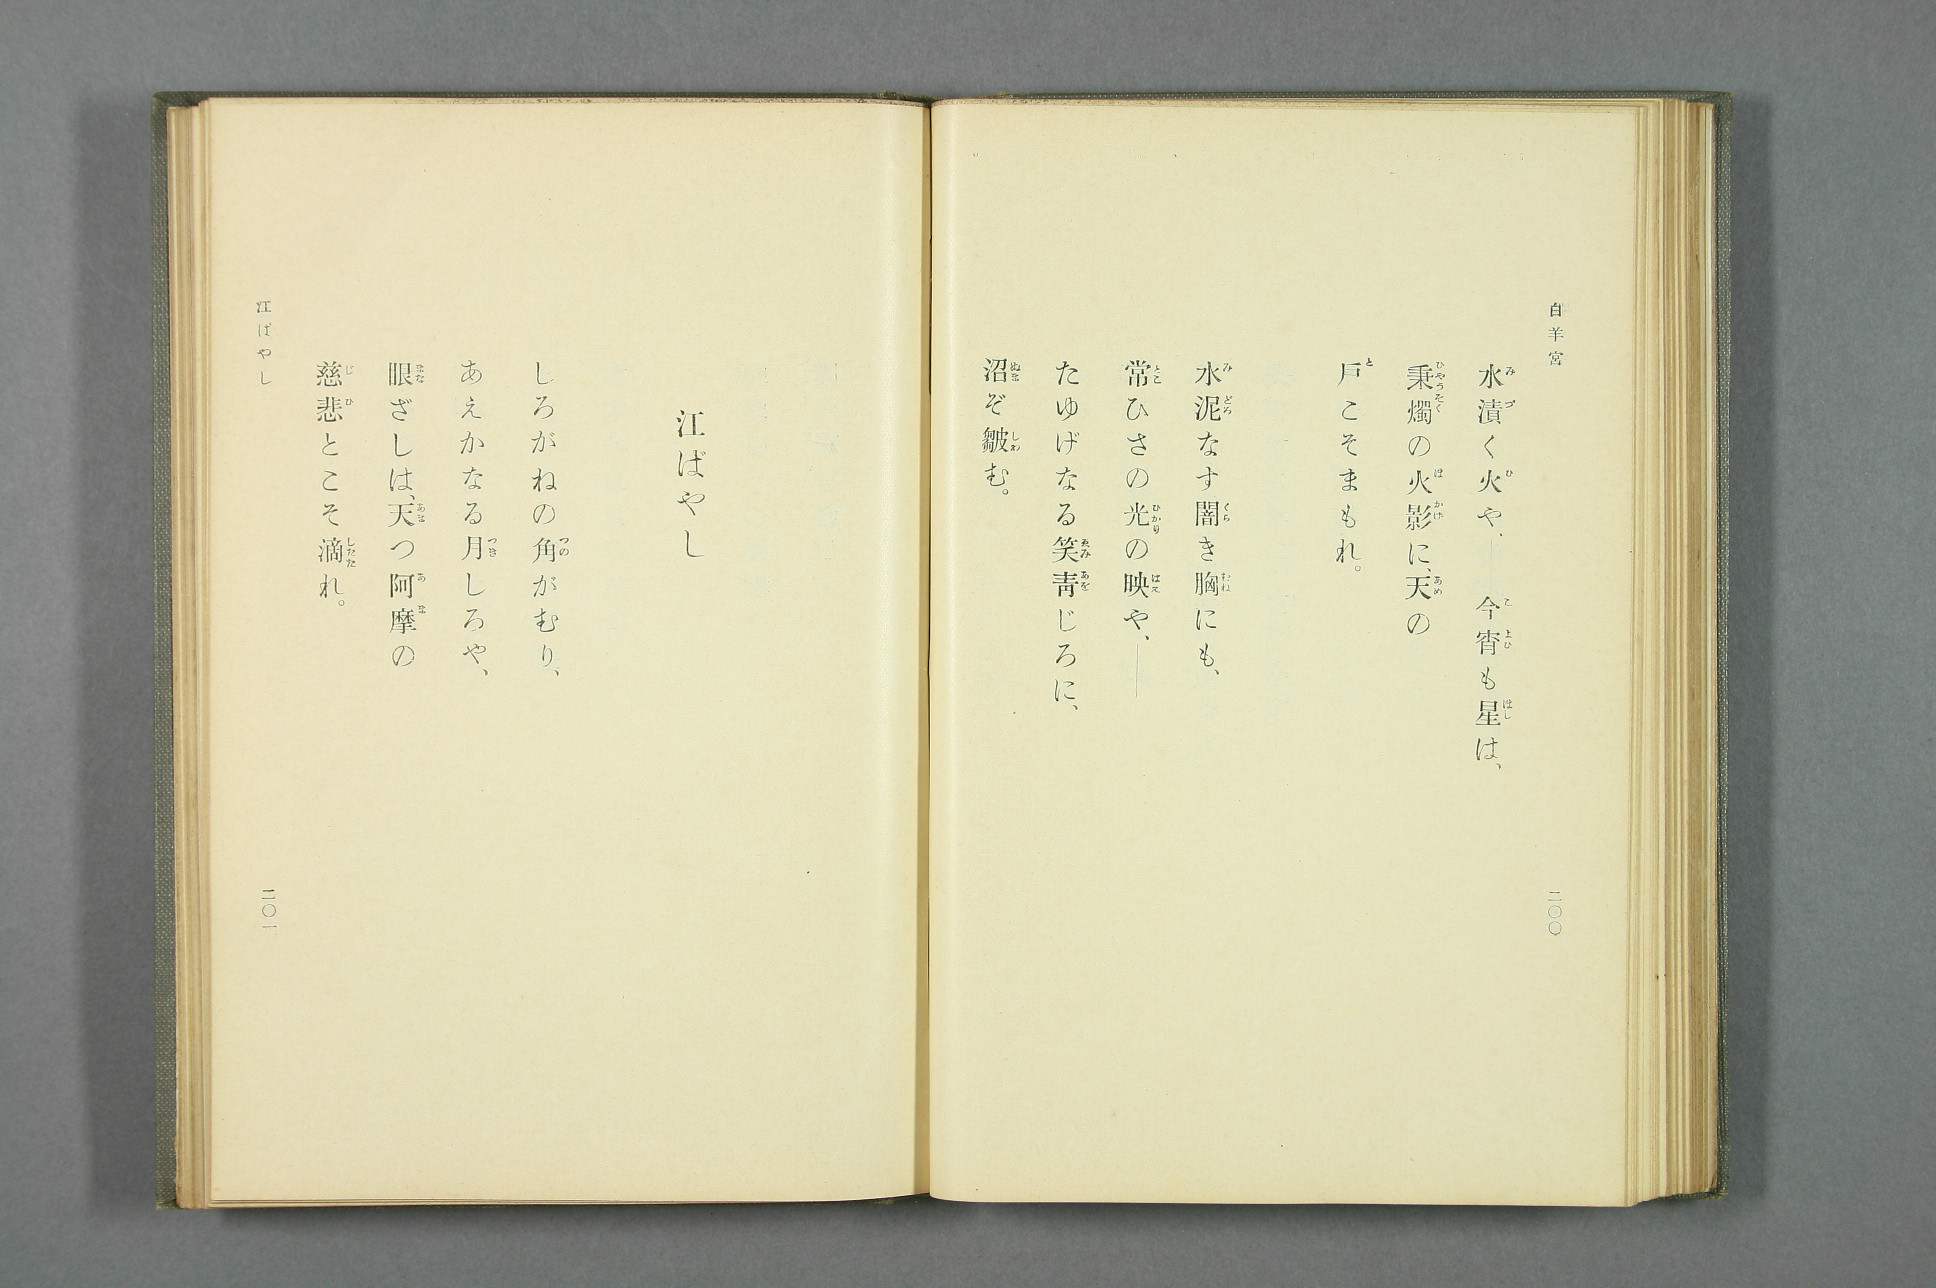 白羊宮
水漬く火や、 今宵も星は、
秉燭の火影に、天の
戸こそまもれ。
水泥なす闇き胸にも、
常ひさの光の映や、――
たゆげなる笑靑じろに、
沼ぞ皺む。
二〇〇
江ばやし
しろがねの角がむり、
あえかなる月しろや、
眼ざしは、天つ阿摩の
慈悲とこそ滴れ。
江ばやし
二〇一